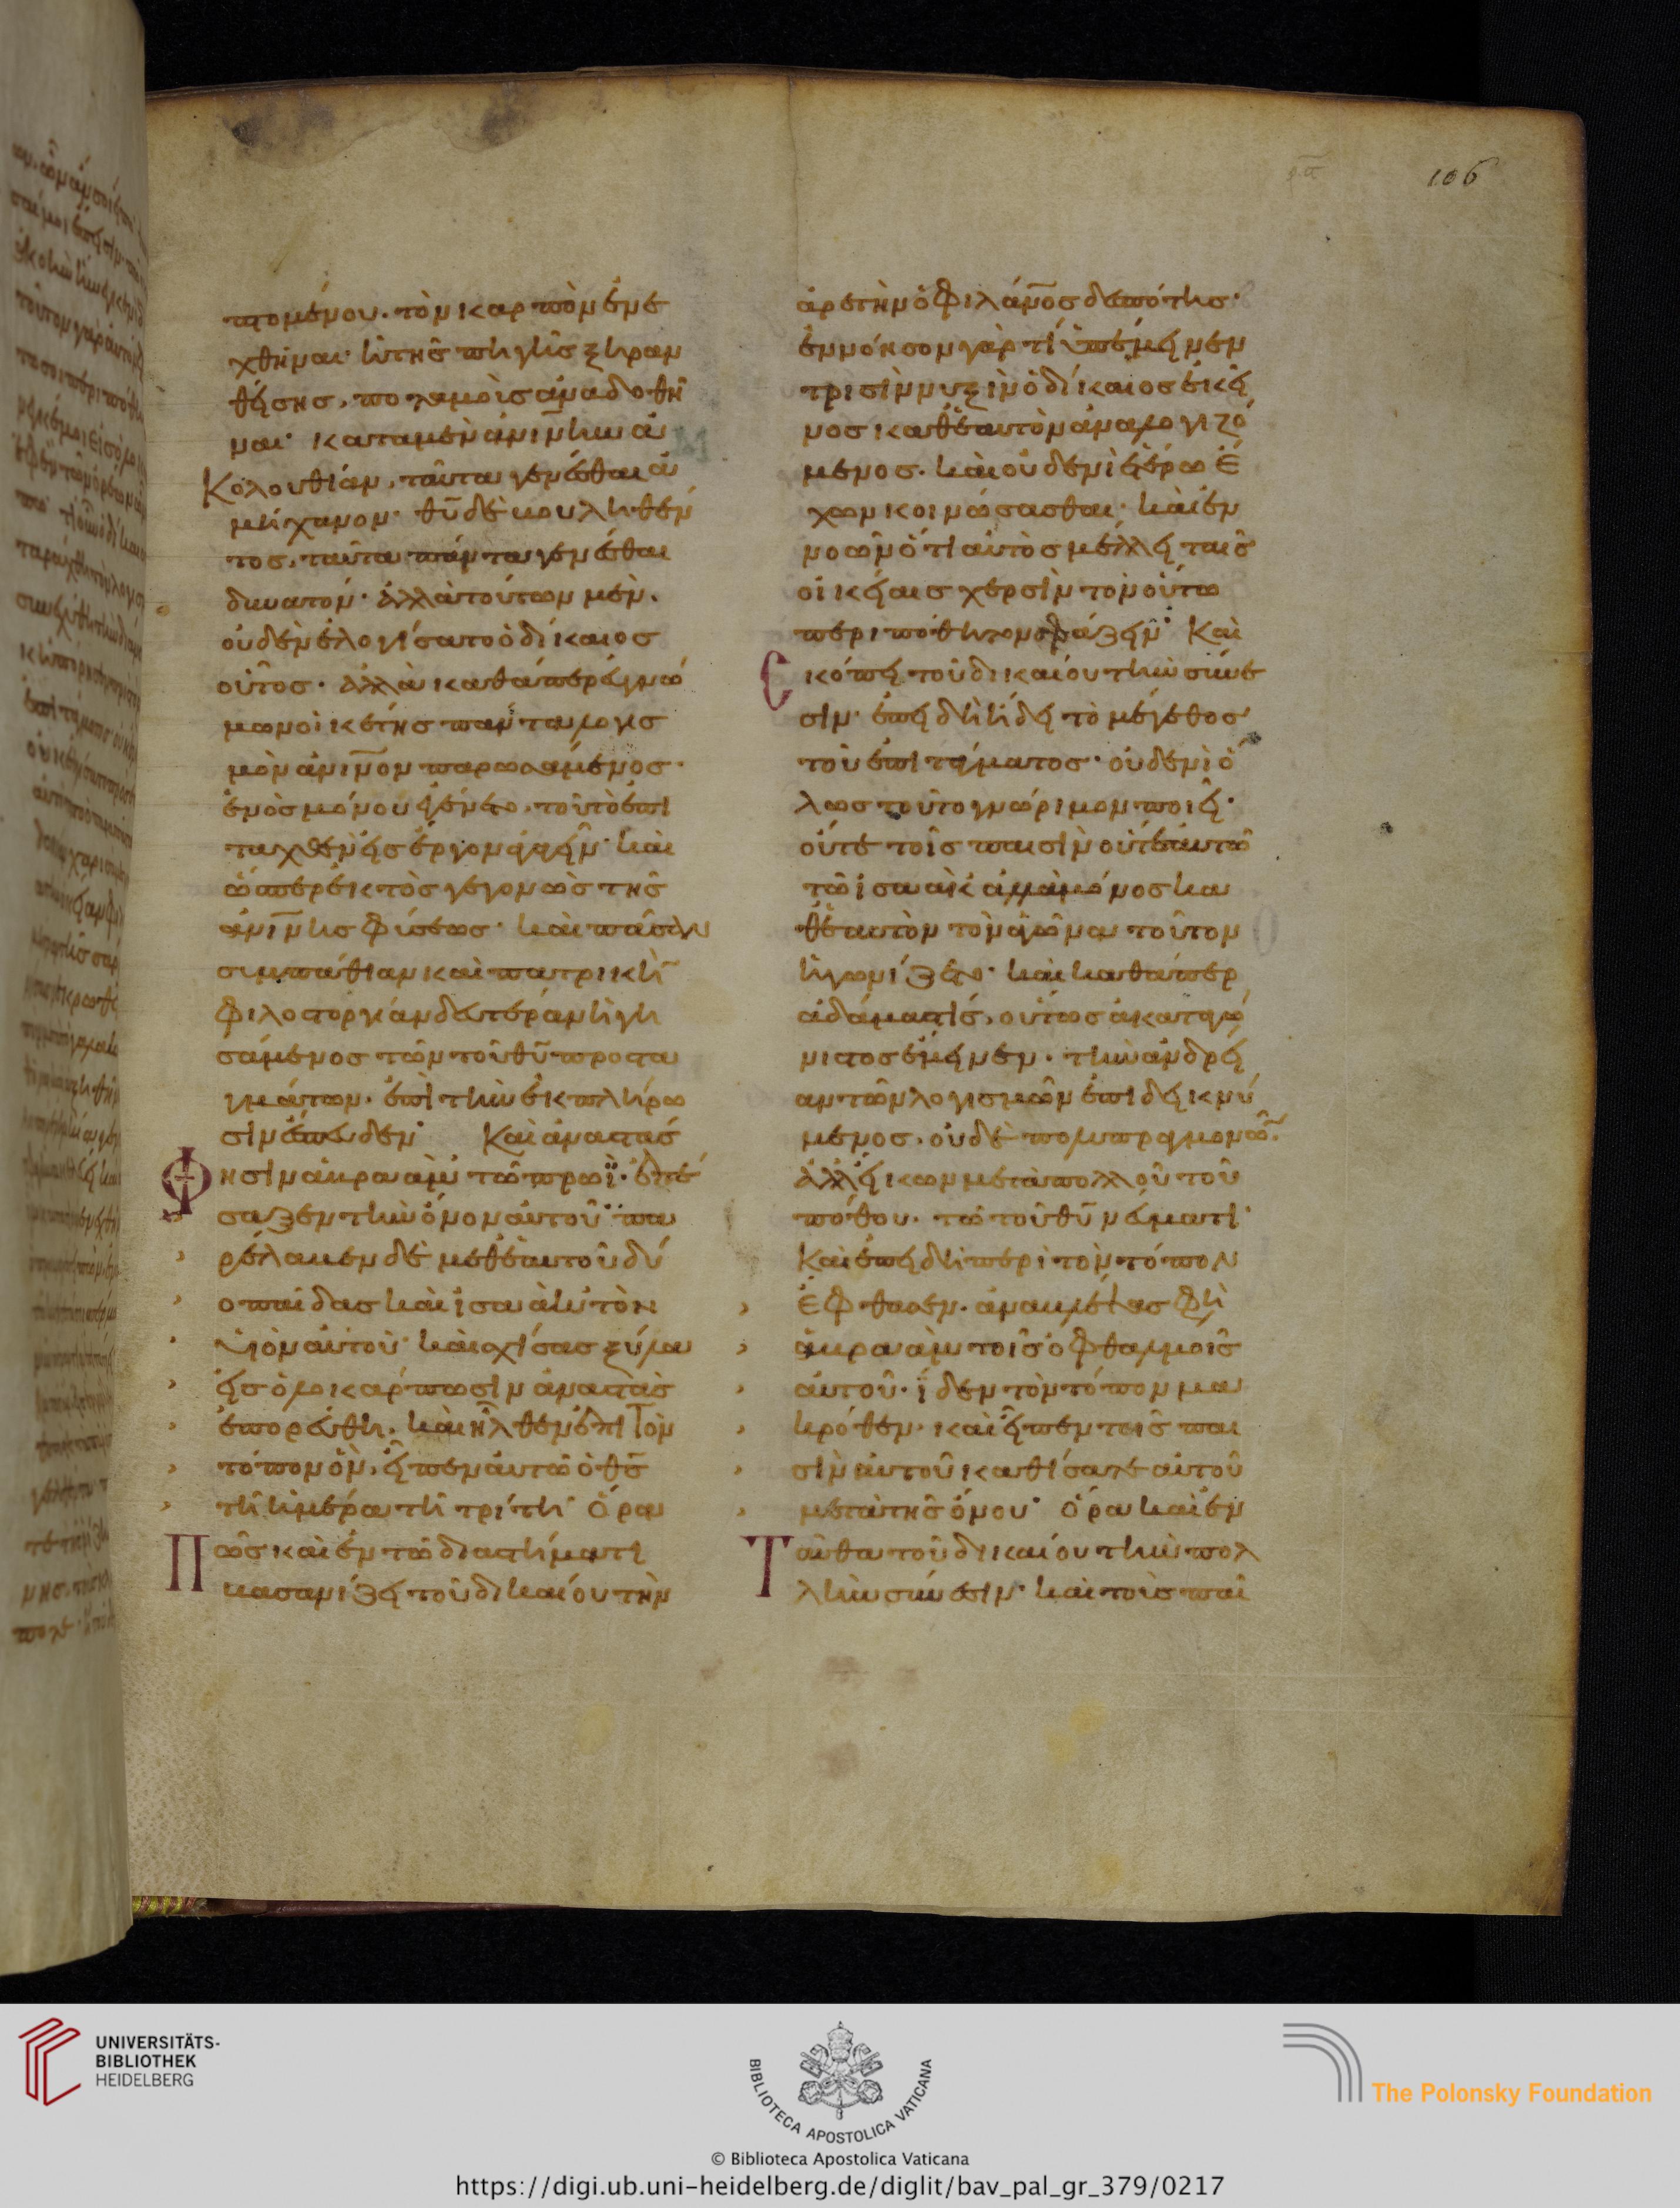 106
πτομένου. τὸν καρπὸν ἐνε
χθῆναι· ἢ τῆς πηγῆς ξηραν
θείσης, ποταμοὺς ἀναδοθῆ
ναι· κατὰ μὲν ἀν̅ιν̅ην ἀ
Κολουθίαν, ταῦτα γενέσθαι ἀ
μήχανον· θ̅υ̅ δὲ βουληθέν
τος, ταῦτα πάντα γενέσθαι
δυνατόν· ἀλλὰ τούτων μὲν.
οὐδὲν ἐλογίσατο ὁ δίκαιος
οὗτος· ἀλλὰ καθάπερ εὐγνώ
μων οἰκέτης πάντα λογισ
μὸν ἀνι̅νον παρωσάμενος·
ἑνὸς μόνου ἐγένετο, τοῦ τὸ ἐπι
ταχθὲν εἰς ἔργον ἀγαγεῖν· καὶ
ὥσπερ ἐκτὸς γεγονὼς τῆς
ἀνι̅νης φύσεως· καὶ πᾶσαν
συμπάθειαν καὶ πατρικὴν
φιλοστοργίαν δευτέραν ἡγη
σάμενος τῶν τοῦ θ̅υ̅ προστα
γμάτων. ἐπὶ τὴν ἐκπλήρω
σιν ἔσπευδεν· Καὶ ἀναστάς
Φησὶν ἁβραὰμ τῶ πρωῒ· ἐπέ
σαξεν τὴν ὄνον αὐτοῦ· πα
ρέλαβεν δὲ μεθἑαυτοῦ δύ
ο παῖδας καὶ ἰσαὰκ τὸν
υἱὸν αὐτοῦ· καὶ σχίσας ξύλα
εἰς ὁλοκάρπωσιν ἀναστὰς
ἐπορεύθη, καὶ ἦλθεν ἐπὶ Τὸν
τόπον ὃν, εἶπεν αὐτῶ ὁ θ̅ς̅
τῆ ἡμέρα τῆ τρίτη· Ὅρα
Πῶς καὶ ἐν τῶ διαστήματι
βασανίζει τοῦ δικαίου τὴν
ἀρετὴν ὁ φιλάν̅ος δεσπότης·
ἐννόησον γὰρ τί ὑπέμεινεν
τρισὶν νυξὶν ὁ δίκαιος ἐκεῖ
νος καθἑαυτὸν ἀναλογιζό
μενος. καὶ οὐδενὶ ἑτέρω ἔ
χων κοινώσασθαι· καὶ ἐν
νοῶν ὅτι αὐτὸς μέλλει ταῖς
οἰκείαις χερσὶν τὸν οὕτω
περιπόθητον σφάζειν· Καὶ
Σκόπει τοῦ δικαίου τὴν σύνε
σιν· ἐπειδὴ ἤδει τὸ μέγεθος
τοῦ ἐπιτάγματος· οὐδενὶ ὅ
λως τοῦτο γνώριμον ποιεῖ·
οὔτε τοῖς παισὶν οὔτε αὐτῶ
τῶ ἰσαὰκ ἀλλὰ μόνος κα
θἑαυτὸν τὸν ἀγῶνα τοῦτον
ἠγωνίζετο· καὶ καθάπερ
ἀδάμας τίς, οὕτως ἀκαταγώ
νιστος ἔμεινεν. τὴν ἀνδρεί
αν τῶν λογισμῶν ἐπιδεικνύ
μενος. οὐδὲ πολυπραγμονῶν.
ἀλλεἴκων μετὰ πολλοῦ τοῦ
πόθου. τῶ τοῦ θ̅υ̅ νεύματι·
Καὶ ἐπειδὴ περὶ τὸν τόπον
Ἔφθασεν. ἀναβλέψας φη
ἁβραὰμ τοῖς ὀφθαλμοῖς
αὐτοῦ. ἴδεν τὸν τόπον μα
κρόθεν· καὶ εἶπεν τοῖς παι
σὶν αὐτοῦ καθίσατε αὐτοῦ
μετὰ τῆς ὄνου· Ὅρα καὶ ἐν
Ταῦθα τοῦ δικαίου τὴν πολ
λὴν σύνεσιν· καὶ τοῖς παι
UNIVERSITÄTS-
BIBLIOTHEK
HEIDELBERG
BIBLIOTECA APOSTOLICA VATICANA
The Polonsky Foundation
© Biblioteca Apostolica Vaticana
https://digi.ub.uni-heidelberg.de/diglit/bav_pal_gr_379/0217